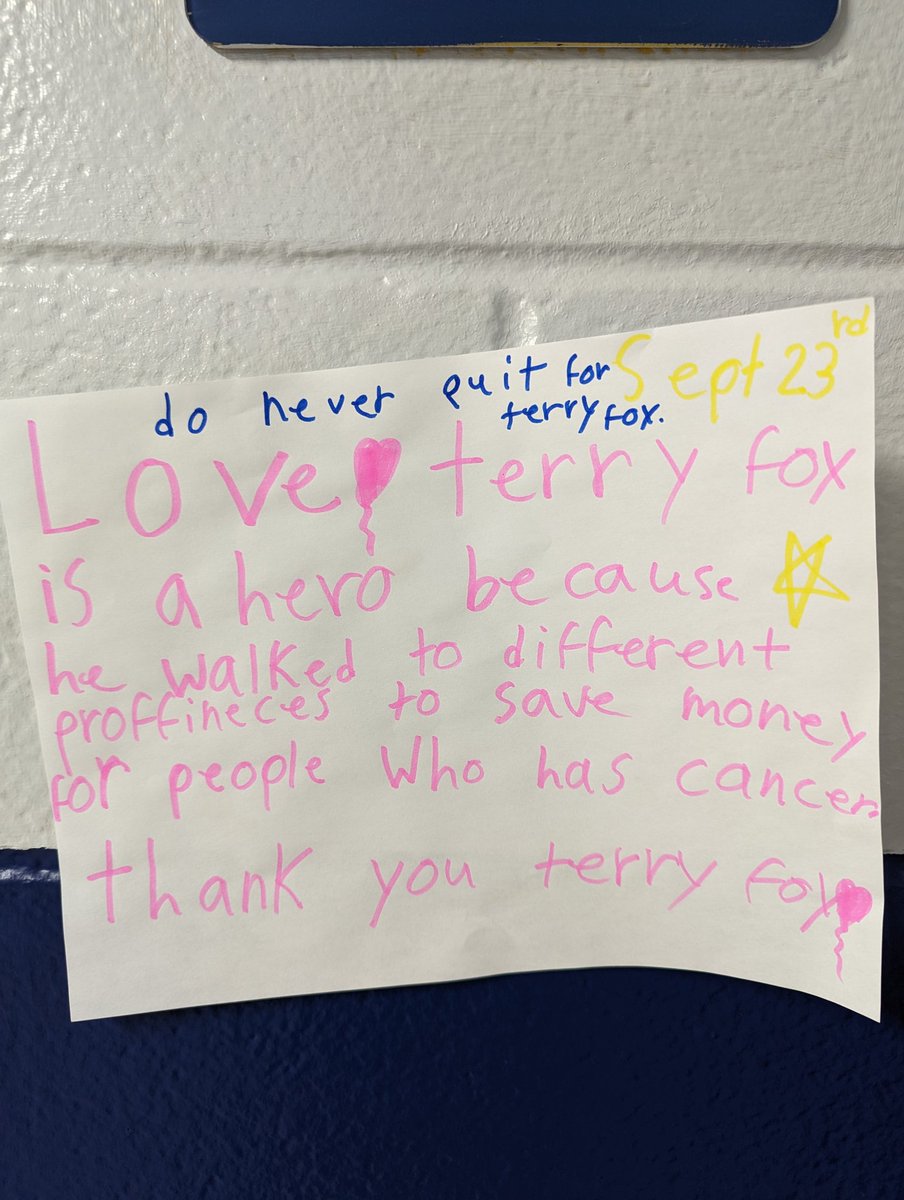 do never quit for
terry fox.
Sept 23rd
Love terry fox
is a hero because
he walked to different
proffineces to save money
for people who has cancer.
thank you terry fox